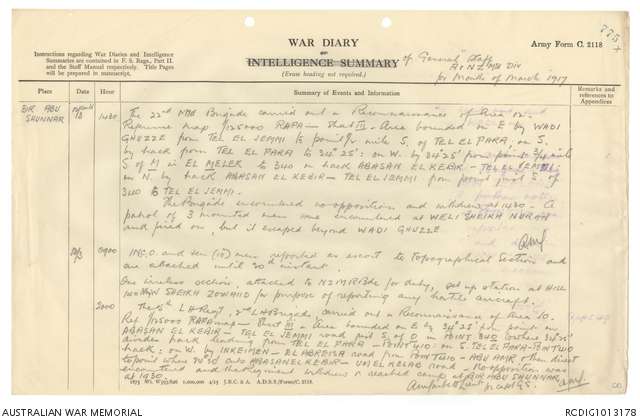 775
WAR DIARY
or
INTELLIGENCE SUMMARY
of "General" Staff
A & N.Z. Mtd Div
for Month of March 1917
(Erase heading not required.)
Instructions regarding War Diaries and Intelligence
Summaries are contained in F. S. Regs., Part II.
and the Staff Manual respectively. Title Pages
will be prepared in manuscript.
Army Form C. 2118
Place
Date
Hour
Summary of Events and Information
Remarks and
references to
Appendices
BIR ABU
SHUNNAR
18
1430
The 22nd Mtd Brigade carried out a Reconnaissance of Area 12.
Reference map 1/125000 RAFA - Sheet III - Area bounded on E by WADI
GHUZZE from TEL EL JEMMI to point 1/2 mile S. of TEL EL FARA on S.
by track from TEL EL FARA to 34° 25': on W. by 34° 25' from point
S of M in EL MELEK to 340 on track ABASAN EL KEBIR - TEL EL JEMMI
on N. by track ABASAN EL KEBIR - TEL EL JEMMI from point just S. of
340 to TEL EL JEMMI.
The Brigade encountered no opposition and withdrew at 1430. A
patrol of 3 mounted men were encountered at WELI SHEIKH NURAN
and fired on, but it escaped beyond WADI GHUZZE.
0900
1 N.C.O. and ten (10) men reported as escort to Topographical Section and
are attached until 30th instant.
One wireless section, attached to N.Z.M.R. Bde for duty, set up station at HILL
SHEIKH ZOWAIID for purpose of reporting any hostile aircraft.
2000
The 5th L H Regt, 2nd L H Brigade, carried out a Reconnaissance of Area 10.
Ref 1/125000 RAFA map - Sheet III - Area bounded on E by 34° 25' from point on
ABASAN EL KEBIR - TEL EL JEMMI road just S. of O in POINT 340 (where 34° 25'
divides track leading from TEL EL FARA - POINT 410: on S. TEL EL FARA - POINT 410
track: on W. by INKEIMEN - EL ABREISA road from POINT 410 - ABU AMR then direct
to point where 34° 20' cuts ABASAN EL KEBIR - UM EL KELAB road - No opposition was
encountered and the Regiment withdrew & reached camp at BIR ABU SHUNNAR
at 1930.
1875 Wt. W593/826 1,000,000 4/15 J.B.C. & A. A.D.S.S./Forms/C. 2118.
AUSTRALIAN WAR MEMORIAL
RCDIG1013178